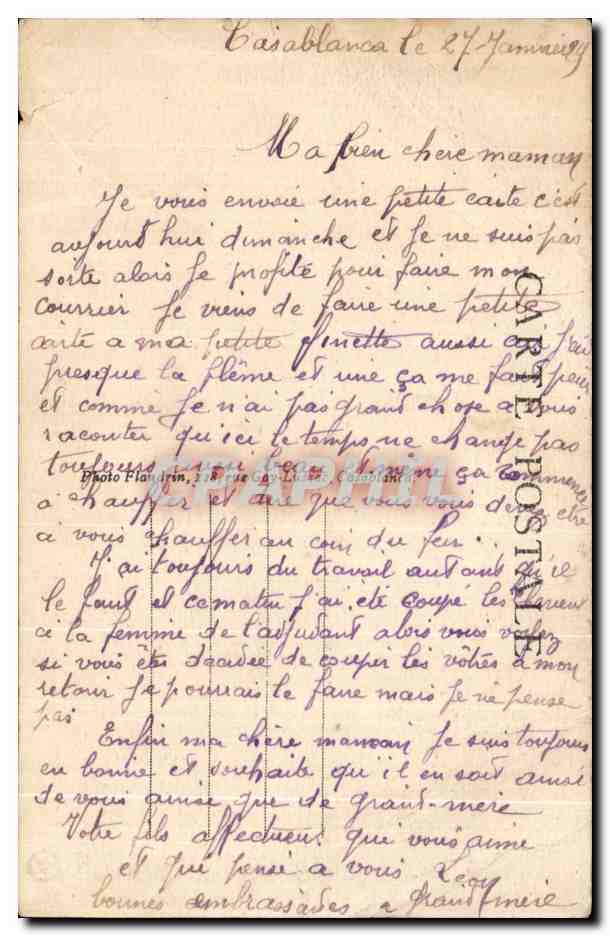 Casablanca le 27 Janvier 29
Ma bien chère maman
Je vous envoie une petite carte c'est
aujourd hui dimanche et je ne suis pas
sorte alors je profite pour faire mon
courrier je viens de faire une petite
carte a ma petite Ginette aussi j'ai
presque la flème et une ça me fait peur
et comme je n'ai pas grand chose a vous
raconter qu'ici le temps ne change pas
toujours aussi beau et meme ça commence
Photo Flandrin, 128, rue Gay-Lussac, Casablanca.
a chauffer et dire que vous vous devez être
a vous chauffer au coin du feu.
J'ai toujours du travail autant qu'il
le faut et ce matin j'ai été coupé les cheveux
a la femme de l'adjudant alors vous voyez
si vous êtes décidée de couper les vôtres a mon
retour je pourrais le faire mais je ne pense
pas
Enfin ma chère maman je suis toujours
en bonne et souhaite qu'il en soit ainsi
de vous ainsi que de grand-mère
Votre fils affectueux qui vous aime
et qui pense a vous Léon
bonnes embrassades a grand mère
CARTE POSTALE
CPAPHIL